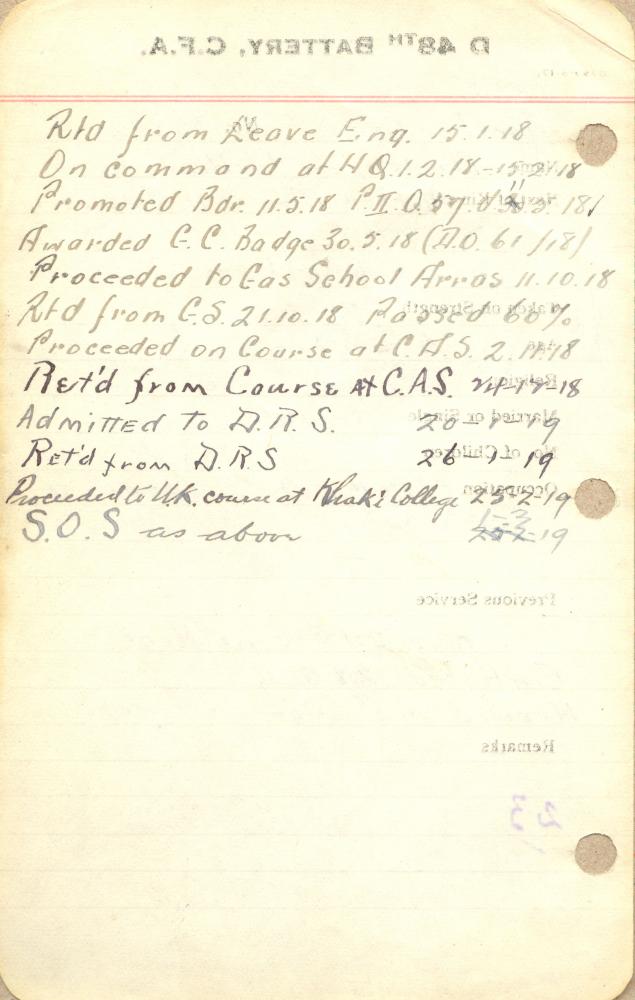 Rtd from Leave Eng. 15.1.18
On command at H Q.1.2.18.-15.2.18
Promoted Bdr. 11.5.18 P II O.57. 18
Awarded G.C. Badge 30.5.18 (D.O. 61/18)
Proceeded to Gas School Arras 11.10.18
Rtd from G.S. 21.10.18 Passed 66%
Proceeded on Course at C.A.S. 2.11.18
Ret'd from Course at C.A.S. 24-12-18
Admitted to D.R.S. 20-1-19
Ret'd from D.R.S 26-1-19
Proceeded to U.K. course at Khaki College 25-2-19
S.O.S as above 1-3 25-2-19
D 48TH BATTERY, C.F.A.
Taken on Strength
Religion
Married or Single
No. of Children
Occupation
Previous Service
Remarks
23